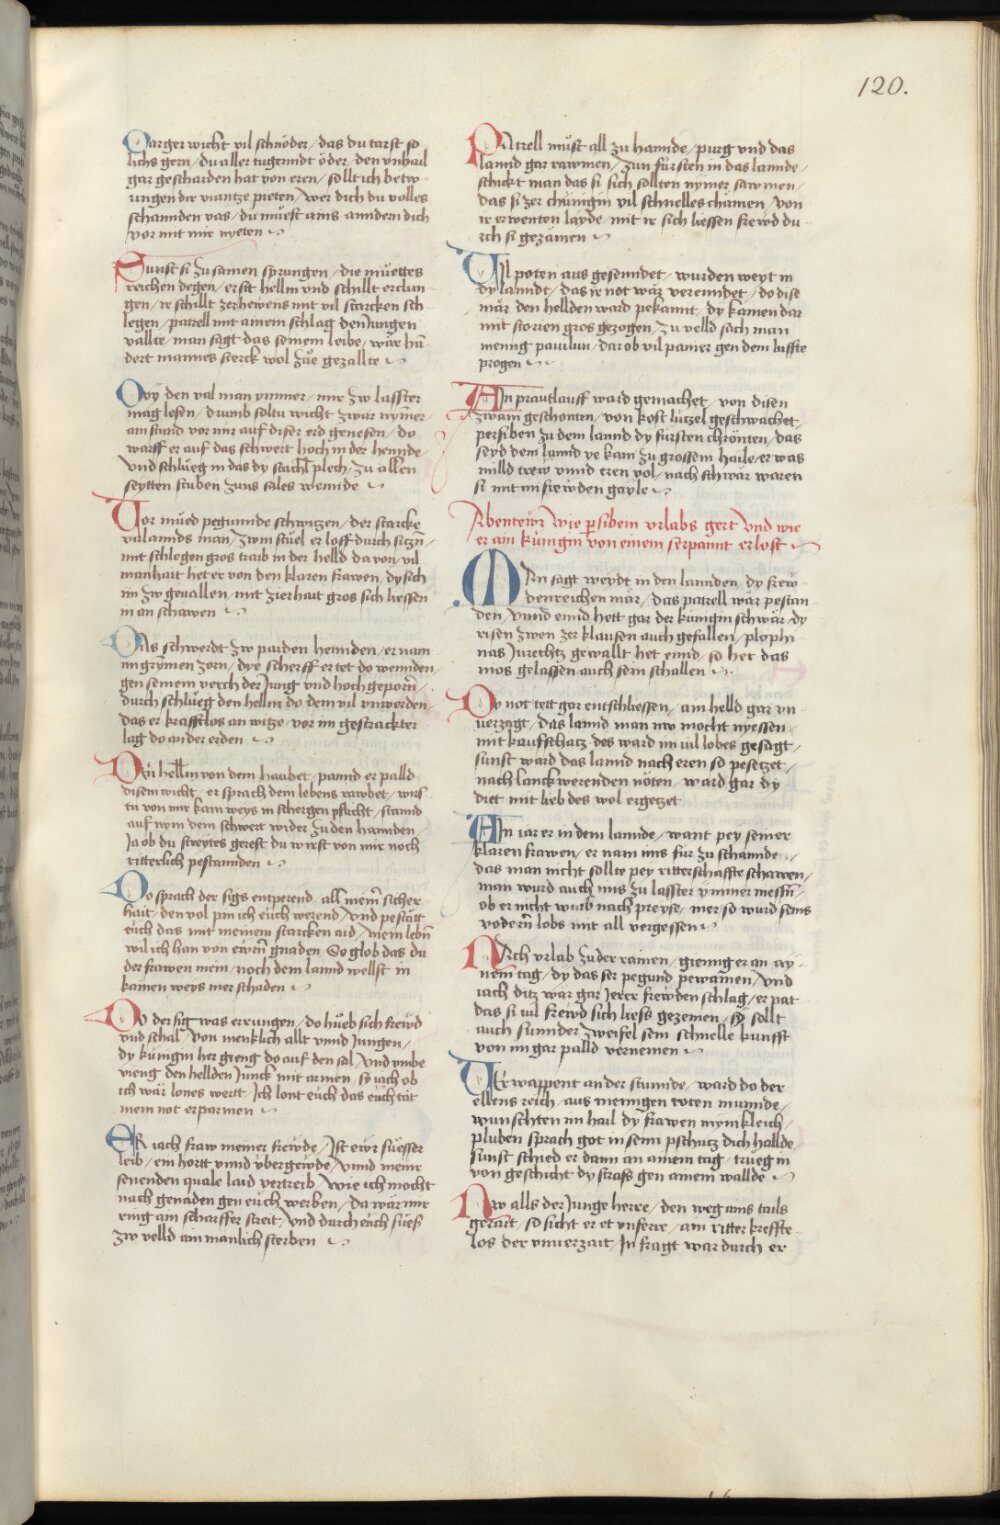 120.
O arger wicht vil schnöder / das du tarst so
lichs gern / du aller tugenndt öder / den vnhail
gar geschaiden hat von eren / sollt ich betw-
ungen dir viantze pieten / wer dich du volles
schannden vas / du müest ains anndern dich
vor mit mir nyeten
Sunst si zusamen sprungen / die müettes
reichen degen / er sit hellm vnd schillt erclun-
gen / ir schillt zerhewens mit vil starcken sch
legen / patrell mit ainem schlag den iungen
vallte / man sagt das seinem leibe / wär hū
dert mannes sterck wol züe gezallte
Owy den val man ymmer / mir zw lasster
mag lesen / drumb soltu wicht zwar nymer
ain stund vor mir auf diser erd genesen / do
warff er auf das schwert hoch in der hennde
vnd schlueg in das dy stachl plech / zu allen
seytten stuben zuns sales wennde
Vor mued pegunnde schwitzen / der starcke
valannds man / zwm stuel er loff durch sitzn̄
mit schlegen gros traib in der helld da von / vil
manhait het er von den klaren frawen / dy sich
im zw geuallen / mit zierhait gros sich liessen
in an schawen
Das schwerdt zw paiden hennden / er nam
in grymen zorn / dye scherff er tet do wennden
gen seinem verch der Jung vnd hoch geporn̄ /
durch schlueg den hellm do dem vil vnwerden
das er krafftlos an witze / vor im gestrackter
lag do an der erden
Den hellm von dem haubet / pannd er palld
disem wicht / er sprach dem lebens rawbet / wirs
tu von mir kain weys in schergen pflicht / stannd
auf nym dein schwert wider zu den hannden /
Ja ob du streytes gerest du wirst von mir noch
ritterlich pestannden
Do sprach der sigs entperend / all mein̄ sicher
hait / den vol pin ich euch werend / vnd pestätt
euch das mit meinem starcken aid / mein lebn̄
wil ich han von ewrn̄ gnaden / So glob das du
der frawen mein / noch dem lannd wellst in
kainen weys mer schaden
Do der sig was errungen / do hueb sich frewd
vnd schal / von menklich allt vnnd Jungen /
dy künigin her gieng do auf den sal / vnd vmbe
vieng den hellden Junck mit armen / sy iach ob
ich wär lones wertt / Ich lont euch das euch tät
mein not erparmen
Er iach fraw meiner frewde / Ist ewr suesser
leib / ein hortt vnnd vbergewde / vnnd meine
senenden quale laid vertreib / wie ich mocht
nach genaden gen euch werben / da wär mir
ring ain scharffer streit / vnd durch euch sues
zw velld ain manlich sterben
Patrell müst all zu hannde / purg vnd das
lannd gar rawmen / zun fürsten in das lannde /
schickt man das si sich sollten nymer sawmen /
das si zer chünigin vil schnelles chämen / von
ir erwenten layde / mit ir sich liessen frewd du-
rch si gezämen
Vil poten aus gesenndet / wurden weyt in
dy lanndt / das ir not wär verenndet / do dise
mär den hellden ward pekannt / dy kamen dar
mit storien gros gezogen / zu velld sach man
menig pauilun / dar ob vil panier gen dem luffte
progen
Ain prautlauff ward gemachet / von disen
zwain geschonten / von kost lützel geschwachet
persiben zu dem lannd dy fürsten chrönten / das
seyd dem lannd ye kam zu grossem haile / er was
milld trew vnnd eren vol / nach schwär waren
si mit im frewden gayle
Abentewr wie persibein vrlabs gert vnd wie
er ain künigin von einem serpannt erlost
Man sagt weydt in den lannden / dy frew-
denreichen mär / das patrell wär pestan
den / vnnd ennd hett gar der künigin schwär / dy
risen zwen zer klausen auch gefallen / plophi
nas Jurechtz gewallt het ennd / so het das
mos gelassen auch sein schallen
Do not tett gar entschliessen / ain helld gar vn
uerzagt / das lannd man nw mocht nyessen
mit kaufschatz / des ward im vil lobes gesagt /
sunst ward das lannd nach eren so pesetzet /
nach lanckwerenden nöten / ward gar dy
diet mit lieb des wol ergetzet
Ain iar er in dem lannde / want pey seiner
klaren frawen / er nam ims für zu schannde
das man nicht sollte pey ritterschaffte schawen /
man wurd auch ims zu lasster ymmer messn̄
ob er nicht wurb nach preyse / mer so wurd seins
vodern̄ lobs mit all vergessen
Nach vrlab zu der rainen / gienng er an ay-
nem tag / dy das ser pegund pewainen / vnd
iach ditz wär gar Jerer frewden schlag / er pat
das si vil frewd sich liess gezemen / sy sollt
auch sunnder zweifel sein schnelle kunfft
von im gar palld vernemen
Ver wappent an der stunnde / ward do der
ellens reich / aus menigen roten munnde /
wunschten im hail dy frawen mynikleich /
pluben sprach got in seim pschutz dich hallde
sunst schied er dann an ainem tag / trueg in
von geschicht dy strass gen ainem wallde
Nw alls der Junge herre / den weg ains tails
gerait / so sicht er et vnferre / ain ritter kreffte-
los der vnuerzait / In fragt war durch er